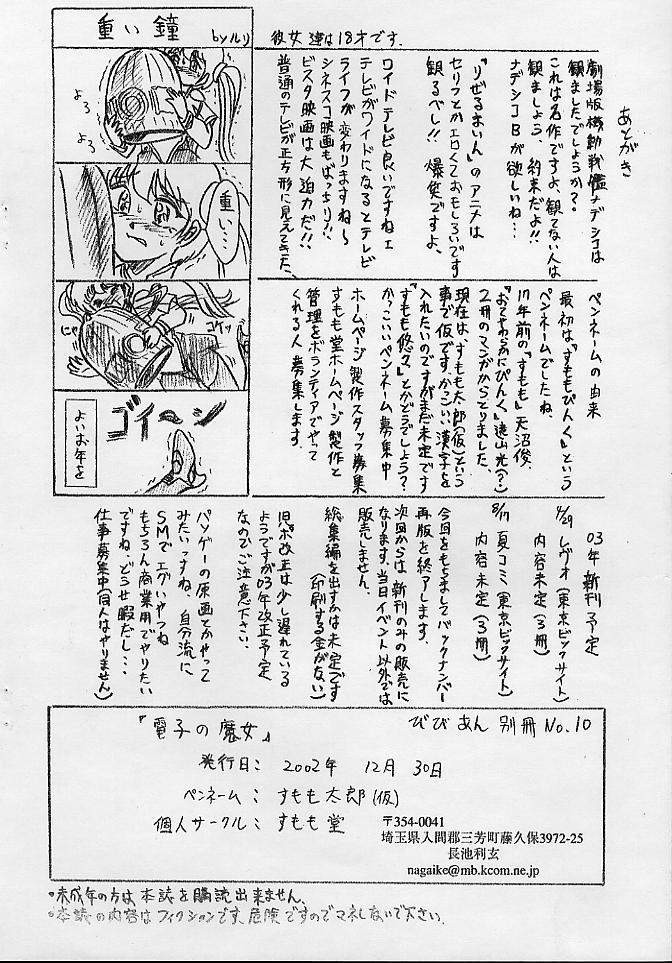 重い鐘
byルリ
よろ
よろ
重い…
にゃ
コケッ
ゴイ〜ン
よいお年を
彼女達は18才です.
あとがき
劇場版機動戦艦ナデシコは
観ましたでしょうか?
これは名作ですよ、観てない人は
観ましょう、約束だよ!!
ナデシコBが欲しいね…
『りぜるまいん』のアニメは
セリフとかエロくておもしろいです
観るべし!!爆笑ですよ、
ワイドテレビ良いですねェ
テレビがワイドになるとテレビ
ライフが変わりますね〜
シネスコ映画もばっちり!!
ビスタ映画は大迫力だ!!
普通のテレビが正方形に見えてきた、
ペンネームの由来
最初は『すももぴんく』という
ペンネームでしたね、
17年前の『すもも』天沼俊、
『おてやわらかにぴんく』遠山光(?)
2冊のマンガからとりました、
現在は、すもも太郎(仮)という
事で仮です。かっこいい漢字を
入れたいのですがまだ未定です
『すもも悠々』とかどうでしょう?
かっこいいペンネーム募集中
ホームページ製作スタッフ募集
すもも堂ホームページ製作と
管理をボランティアでやって
くれる人募集します。
03年新刊予定
4/29 レヴォ(東京ビックサイト)
内容未定(3冊)
8/17 夏コミ(東京ビックサイト)
内容未定(3冊)
今回をもちましてバックナンバー
再版を終了します.
次回からは新刊のみの販売に
なります。当日イベント以外では
販売しません、
総集編を出すかは未定です
(印刷する金がない)
旧ポ改正は少し遅れている
ようですが03年改正予定
なのでご注意下さい、
パソゲーの原画とかやって
みたいっすね、自分流に
SMでエグいやつね
もちろん商業用でやりたい
ですね、どうせ暇だし…
仕事募集中(同人はやりません)
『電子の魔女』
びびあん 別冊 No.10
発行日: 2002年 12月 30日
ペンネーム: すもも太郎(仮)
個人サークル: すもも堂
〒354-0041
埼玉県入間郡三芳町藤久保3972-25
長池利玄
nagaike@mb.kcom.ne.jp
•未成年の方は本誌を購読出来ません.
•本誌の内容はフィクションです、危険ですのでマネしないで下さい.